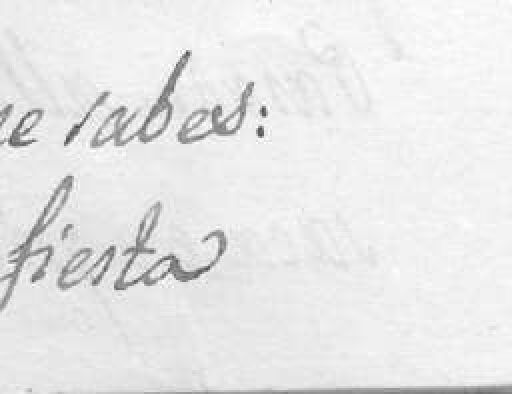 ue sabes:
fiesta